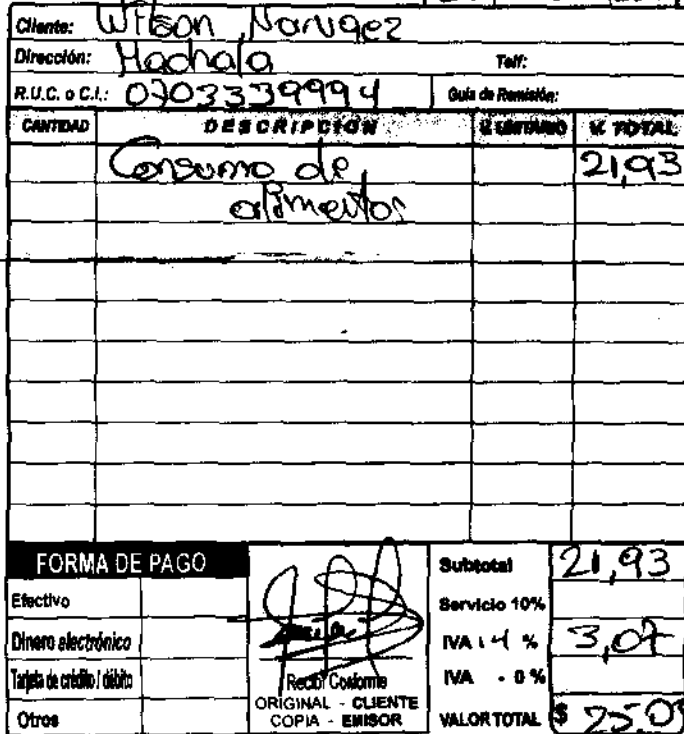 Cliente: Wilson Narvaez
Dirección: Machala Telf:
R.U.C. o C.I.: 0703339994 Guía de Remisión:
CANTIDAD DESCRIPCIÓN V. UNITARIO V. TOTAL
Consumo de 21,93
alimentos
FORMA DE PAGO
Efectivo
Dinero electrónico
Tarjeta de crédito / débito
Otros
Recibí Conforme
ORIGINAL - CLIENTE
COPIA - EMISOR
Subtotal 21,93
Servicio 10%
IVA 14 % 3,07
IVA - 0 %
VALOR TOTAL $ 25,0